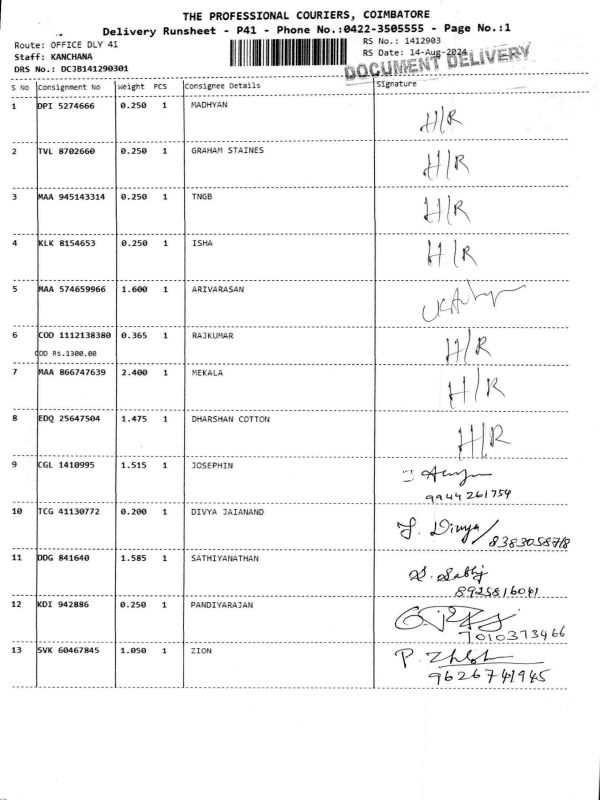 THE PROFESSIONAL COURIERS, COIMBATORE
Delivery Runsheet - P41 - Phone No.:0422-3505555 - Page No.:1
Route: OFFICE DLY 41
RS No.: 1412903
Staff: KANCHANA
RS Date: 14-Aug-2024
DRS No.: DCJB141290301
DOCUMENT DELIVERY
S No Consignment No Weight PCS Consignee Details Signature
1 DPI 5274666 0.250 1 MADHYAN H/R
2 TVL 8702660 0.250 1 GRAHAM STAINES H/R
3 MAA 945143314 0.250 1 TNGB H/R
4 KLK 8154653 0.250 1 ISHA H/R
5 MAA 574659966 1.600 1 ARIVARASAN
6 COD 1112138380 0.365 1 RAJKUMAR H/R
COD Rs.1300.00
7 MAA 866747639 2.400 1 MEKALA H/R
8 EDQ 25647504 1.475 1 DHARSHAN COTTON H/R
9 CGL 1410995 1.515 1 JOSEPHIN
9944261754
10 TCG 41130772 0.200 1 DIVYA JAIANAND J. Divya/
8383058718
11 DDG 841640 1.585 1 SATHIYANATHAN
8925816041
12 KDI 942886 0.250 1 PANDIYARAJAN
7010373466
13 SVK 60467845 1.050 1 ZION
9626741945